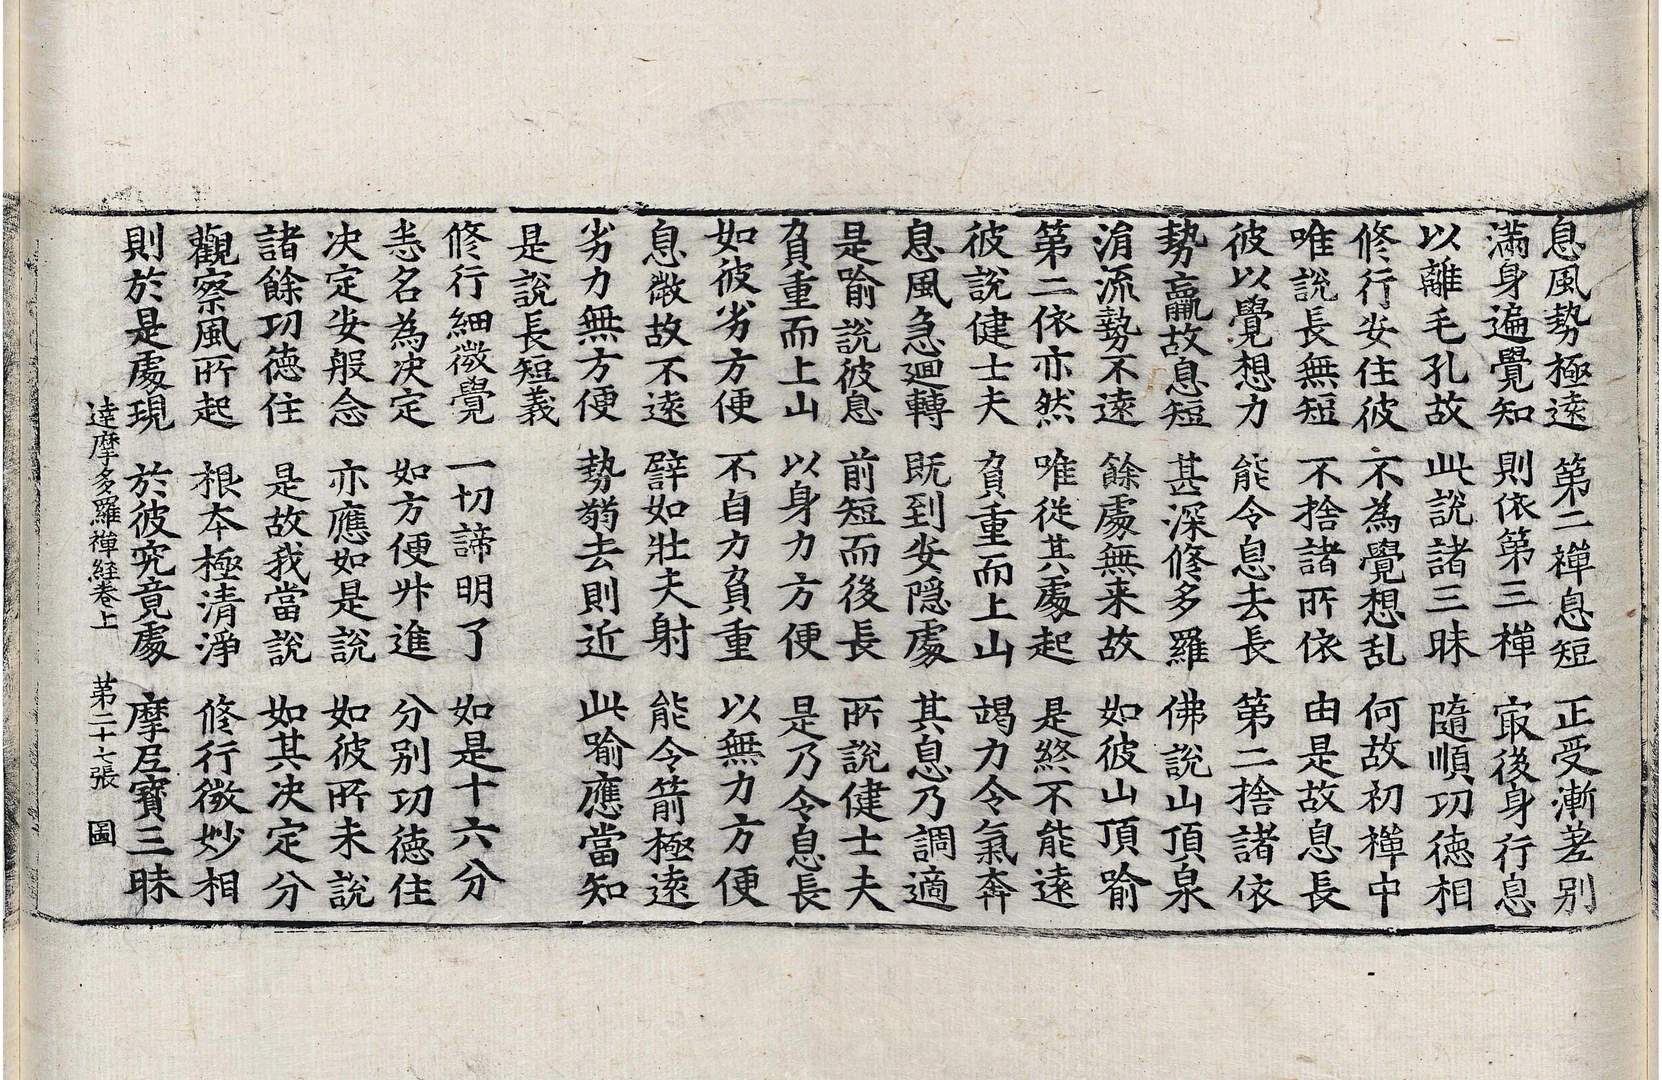 息風勢極遠　第二禪息短　正受漸差別
滿身遍覺知　則依第三禪　㝡後身行息
以離毛孔故　此說諸三昧　隨順功德相
修行安住彼　不為覺想乱　何故初禪中
唯說長無短　不捨諸所依　由是故息長
彼以覺想力　能令息去長　第二捨諸依
勢羸故息短　甚深修多羅　佛說山頂泉
涓流勢不遠　餘處無来故　如彼山頂喻
第二依亦然　唯從其處起　是終不能遠
彼說健士夫　負重而上山　竭力令氣奔
息風急迴轉　既到安隱處　其息乃調適
是喻說彼息　前短而後長　所說健士夫
負重而上山　以身力方便　是乃令息長
如彼劣方便　不自力負重　以無力方便
息微故不遠　譬如壯夫射　能令箭極遠
劣力無方便　勢猶去則近　此喻應當知
是說長短義
修行細微覺　一切諦明了　如是十六分
悉名為决定　如方便昇進　分別功德住
决定安般念　亦應如是說　如彼所未說
諸餘功德住　是故我當說　如其决定分
觀察風所起　根本極清淨　修行微妙相
則於是處現　於彼究竟處　摩尼寶三昧
達摩多羅禪経卷上　第二十七張　圖